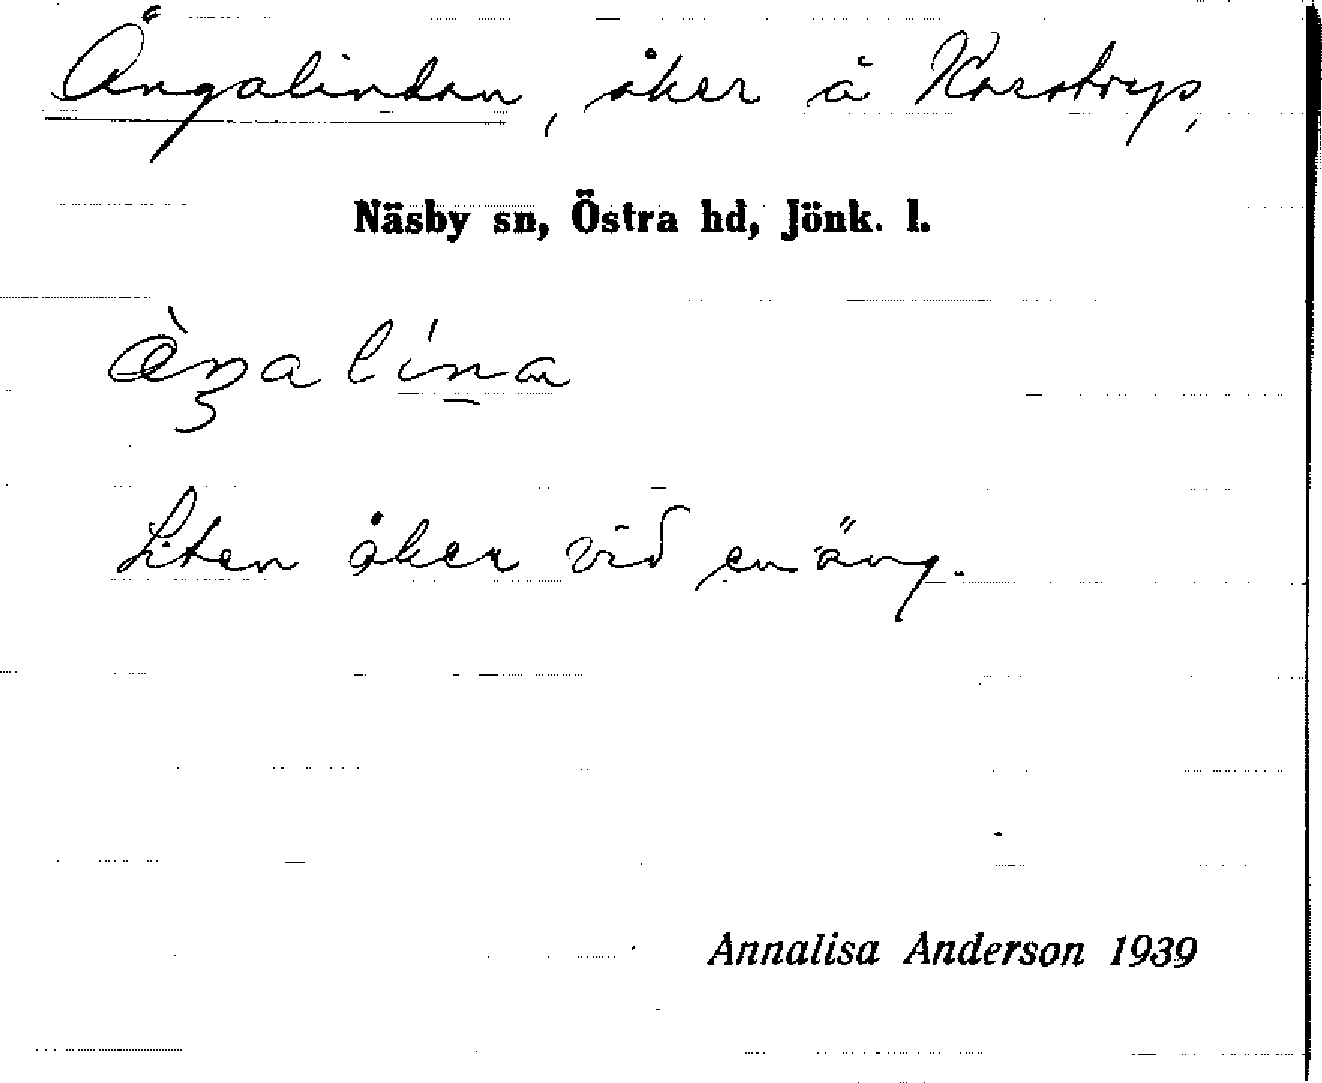 Ängalindan, åker å Karstorp,
Näsby sn, Östra hd, Jönk. l.
æ̀ŋa lín̠a
Liten åker vid en äng.
Annalisa Anderson 1939